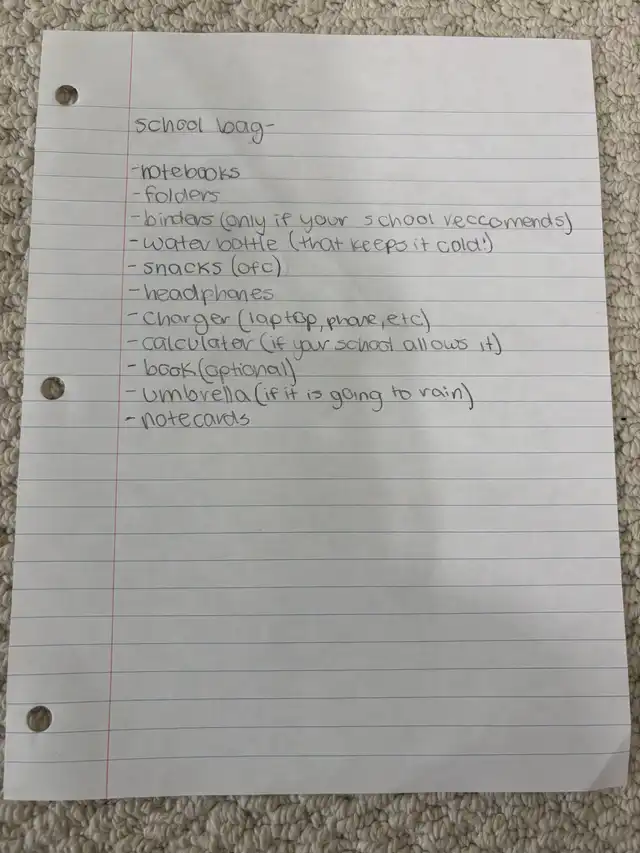 school bag-
-notebooks
-folders
-binders (only if your school reccomends)
-water bottle (that keeps it cold!)
-snacks (ofc)
-headphones
-charger (laptop, phone, etc)
-calculater (if your school allows it)
-book (optional)
-umbrella (if it is going to rain)
-notecards